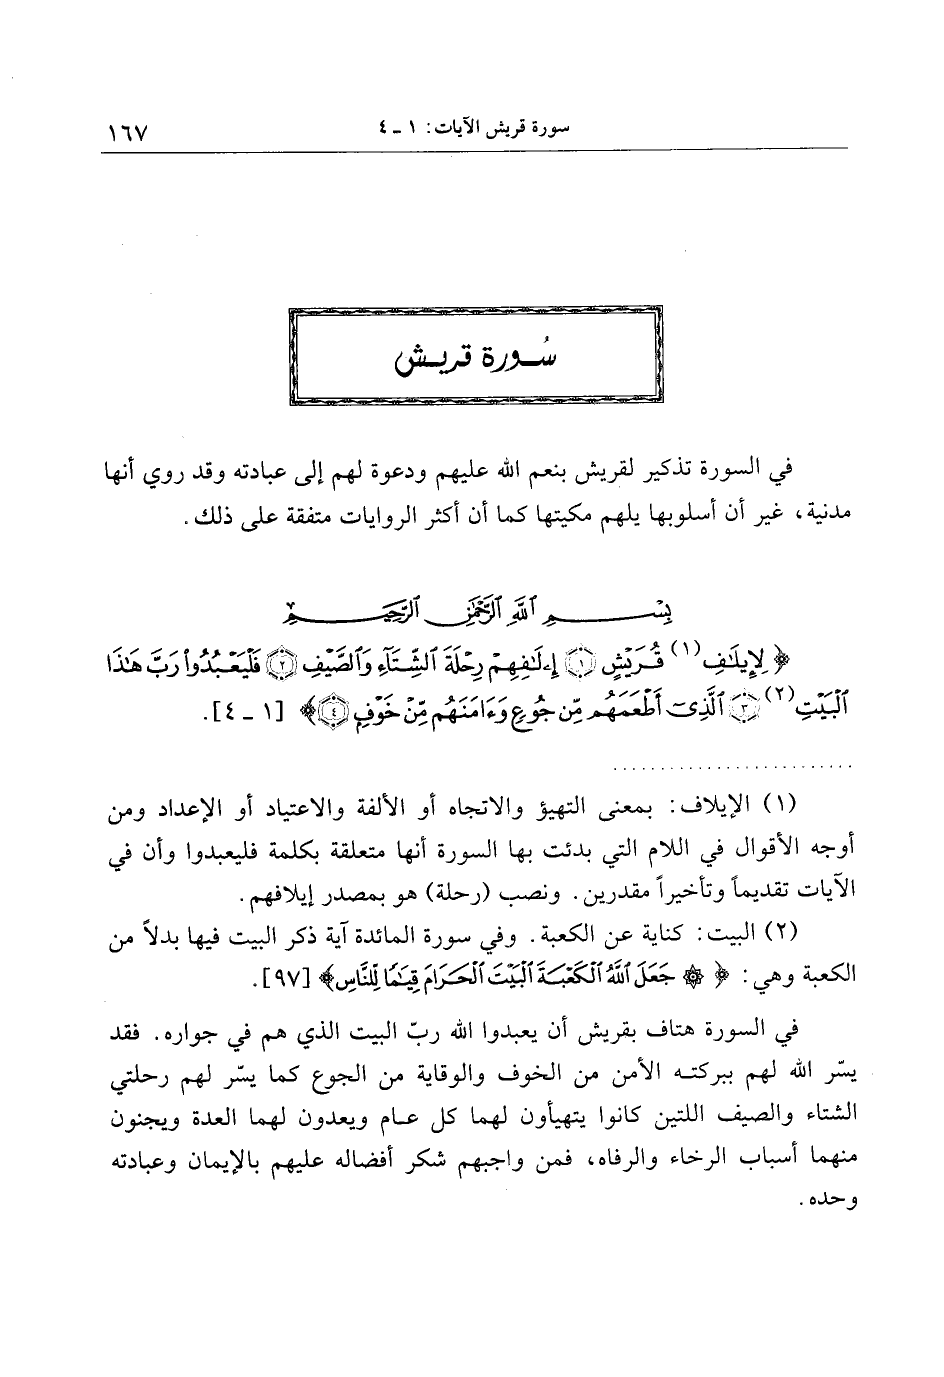 سورة قريش الآيات: ١ ـ ٤
١٦٧
سُورة قريش
في السورة تذكير لقريش بنعم الله عليهم ودعوة لهم إلى عبادته وقد روي أنها
مدنية، غير أن أسلوبها يلهم مكيتها كما أن أكثر الروايات متفقة على ذلك.
بِسْمِ ٱللَّهِ ٱلرَّحْمَٰنِ ٱلرَّحِيمِ
﴿ لِإِيلَٰفِ (١) قُرَيْشٍ ۝١ إِۦلَٰفِهِمْ رِحْلَةَ ٱلشِّتَآءِ وَٱلصَّيْفِ ۝٢ فَلْيَعْبُدُوا۟ رَبَّ هَٰذَا
ٱلْبَيْتِ (٢) ۝٣ ٱلَّذِىٓ أَطْعَمَهُم مِّن جُوعٍ وَءَامَنَهُم مِّنْ خَوْفٍۭ ۝٤ ﴾ [١ ـ ٤].
........................
(١) الإيلاف: بمعنى التهيؤ والاتجاه أو الألفة والاعتياد أو الإعداد ومن
أوجه الأقوال في اللام التي بدئت بها السورة أنها متعلقة بكلمة فليعبدوا وأن في
الآيات تقديماً وتأخيراً مقدرين. ونصب (رحلة) هو بمصدر إيلافهم.
(٢) البيت: كناية عن الكعبة. وفي سورة المائدة آية ذكر البيت فيها بدلاً من
الكعبة وهي: ﴿ ۞ جَعَلَ ٱللَّهُ ٱلْكَعْبَةَ ٱلْبَيْتَ ٱلْحَرَامَ قِيَٰمًا لِّلنَّاسِ ﴾ [٩٧].
في السورة هتاف بقريش أن يعبدوا الله ربّ البيت الذي هم في جواره. فقد
يسّر الله لهم ببركته الأمن من الخوف والوقاية من الجوع كما يسّر لهم رحلتي
الشتاء والصيف اللتين كانوا يتهيأون لهما كل عام ويعدون لهما العدة ويجنون
منهما أسباب الرخاء والرفاه، فمن واجبهم شكر أفضاله عليهم بالإيمان وعبادته
وحده.